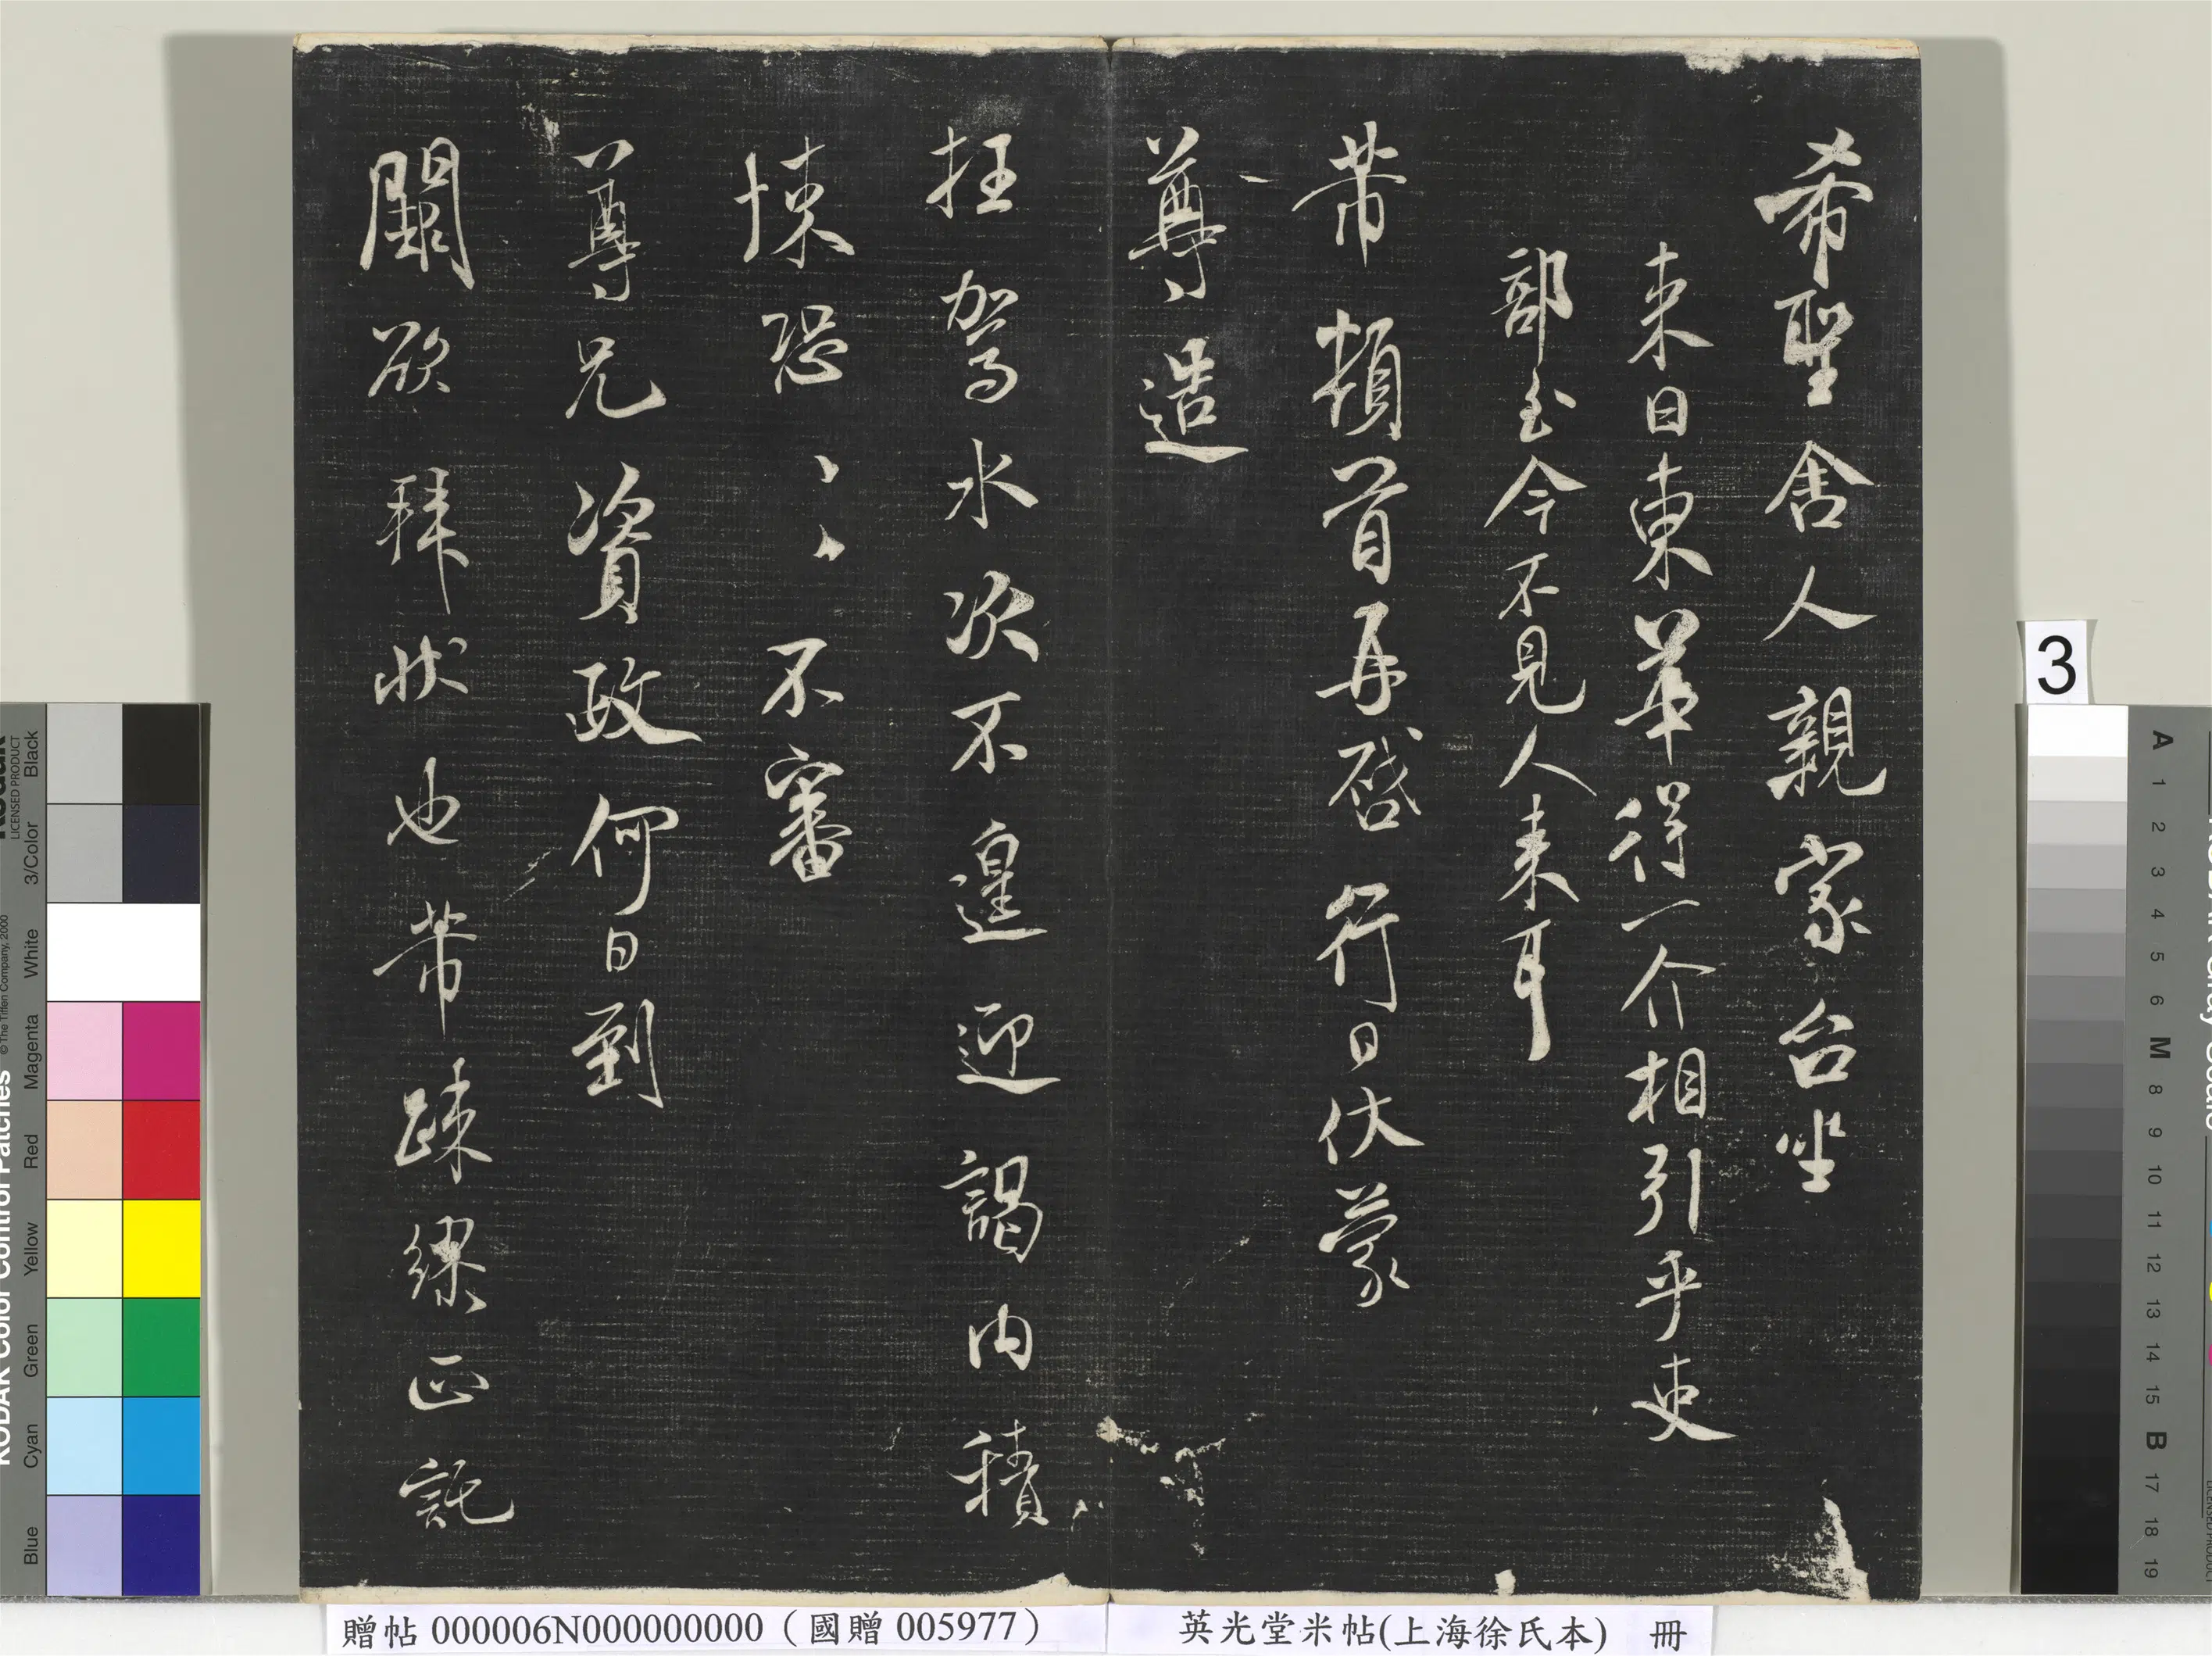 希聖舍人親家台坐
来日東華得一介相引乎吏
部至今不見人来耳
芾頓首再啓行日伏蒙
尊造
抂駕水次不遑迎謁内積
悚恐〻〻不審
尊兄資政何日到
闕欲拜狀也芾疎繆正託
3
贈帖 000006N000000000（國贈 005977）
英光堂米帖(上海徐氏本) 冊
KODAK Color Control Patches
© The Tiffen Company, 2000
Kodak
LICENSED PRODUCT
Blue Cyan Green Yellow Red Magenta White 3/Color Black
A 1 2 3 4 5 6 M 8 9 10 11 12 13 14 15 B 17 18 19